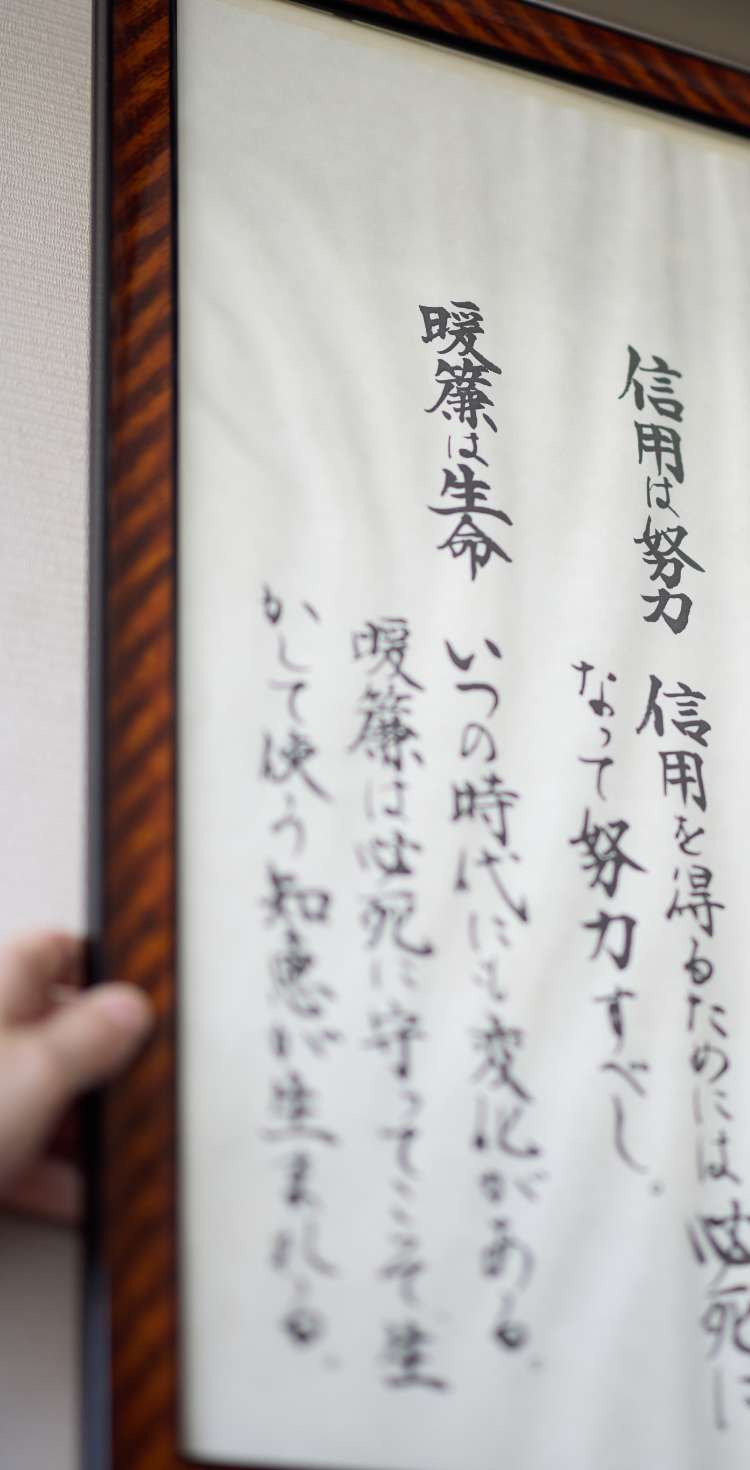 信用は努力
信用を得るためには必死に
なって努力すべし。
暖簾は生命
いつの時代にも変化がある。
暖簾は必死に守ってこそ生
かして使う知恵が生まれる。